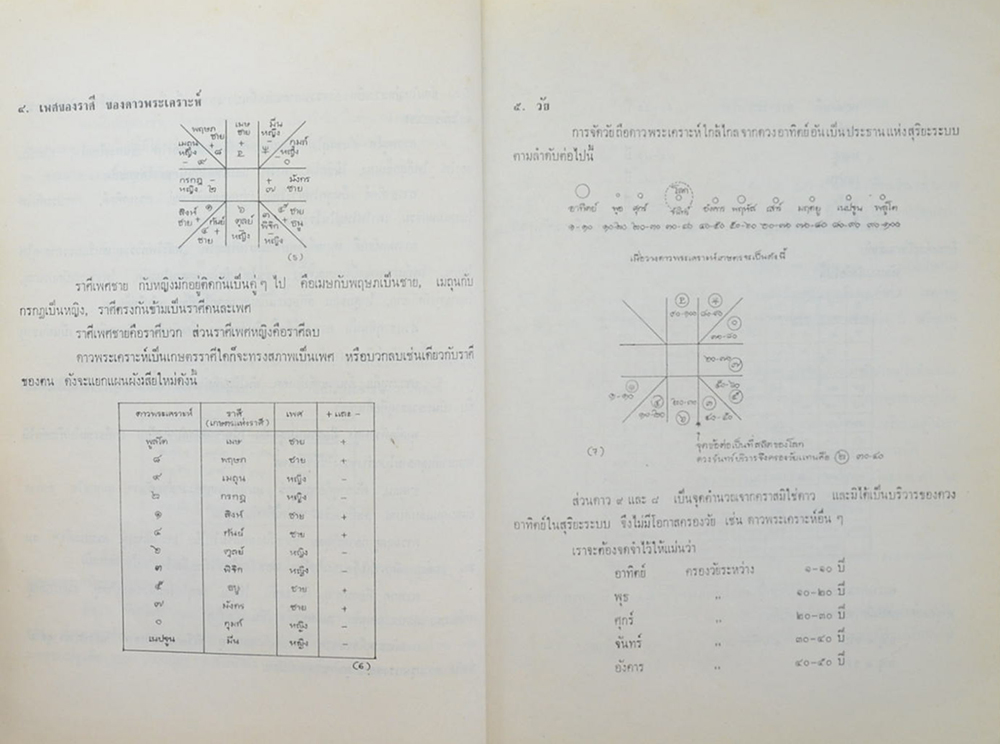 ๔. เพศของราศี ของดาวพระเคราะห์
พฤษภ ชาย + ๘
เมษ ชาย +
มีน หญิง -
เมถุน หญิง - ๙
กุมภ์ หญิง - ๐
กรกฎ - หญิง ๒
+ มังกร ๗ ชาย
สิงห์ ๑ ชาย +
กันย์ ๔ + ชาย
๖ ตุลย์ - หญิง
๓ พิจิก - หญิง
๕ ชาย + ธนู
(5)
ราศีเพศชาย กับหญิงมักอยู่ติดกันเป็นคู่ๆ ไป คือเมษกับพฤษภเป็นชาย, เมถุนกับ
กรกฎเป็นหญิง, ราศีตรงกันข้ามเป็นราศีคนละเพศ
ราศีเพศชายคือราศีบวก ส่วนราศีเพศหญิงคือราศีลบ
ดาวพระเคราะห์เป็นเกษตรราศีใดก็จะทรงสภาพเป็นเพศ หรือบวกลบเช่นเดียวกับราศี
ของตน ดังจะแยกแผนผังเสียใหม่ดังนี้
ดาวพระเคราะห์ ราศี (เกษตรแห่งราศี) เพศ + และ -
พูลโต เมษ ชาย +
๘ พฤษภ ชาย +
๙ เมถุน หญิง -
๒ กรกฎ หญิง -
๑ สิงห์ ชาย +
๔ กันย์ ชาย +
๖ ตุลย์ หญิง -
๓ พิจิก หญิง -
๕ ธนู ชาย +
๗ มังกร ชาย +
๐ กุมภ์ หญิง -
เนปจูน มีน หญิง -
(6)
๕. วัย
การจัดวัยถือดาวพระเคราะห์ใกล้ไกลจากดวงอาทิตย์อันเป็นประธานแห่งสุริยะระบบ
ตามลำดับต่อไปนี้
โลก
อาทิตย์ พุธ ศุกร์ จันทร์ อังคาร พฤหัส เสาร์ มฤตยู เนปจูน พลูโต
๑-๑๐ ๑๐-๒๐ ๒๐-๓๐ ๓๐-๔๐ ๔๐-๕๐ ๕๐-๖๐ ๖๐-๗๐ ๗๐-๘๐ ๘๐-๙๐ ๙๐-๑๐๐
เมื่อวางดาวพระเคราะห์เกษตรจะเป็นดังนี้
๙๐-๑๐๐ ๘๐-๙๐
๐ ๗๐-๘๐
๖๐-๗๐ ๗
๑ ๑-๑๐
๔ ๑๐-๒๐
๒๐-๓๐ ๖
๓ ๔๐-๕๐
๕๐-๖๐ ๕
(7)
จุดข้อต่อเป็นที่สถิตของโลก
ดวงจันทร์บริวารจึงครองวัยแทนคือ ๒ ๓๐-๔๐
ส่วนดาว ๙ และ ๘ เป็นจุดคำนวณจากคราสมิใช่ดาว และมิได้เป็นบริวารของดวง
อาทิตย์ในสุริยะระบบ จึงไม่มีโอกาสครองวัย เช่น ดาวพระเคราะห์อื่น ๆ
เราจะต้องจดจำไว้ให้แม่นว่า
อาทิตย์ ครองวัยระหว่าง ๑-๑๐ ปี
พุธ ,, ๑๐-๒๐ ปี
ศุกร์ ,, ๒๐-๓๐ ปี
จันทร์ ,, ๓๐-๔๐ ปี
อังคาร ,, ๔๐-๕๐ ปี